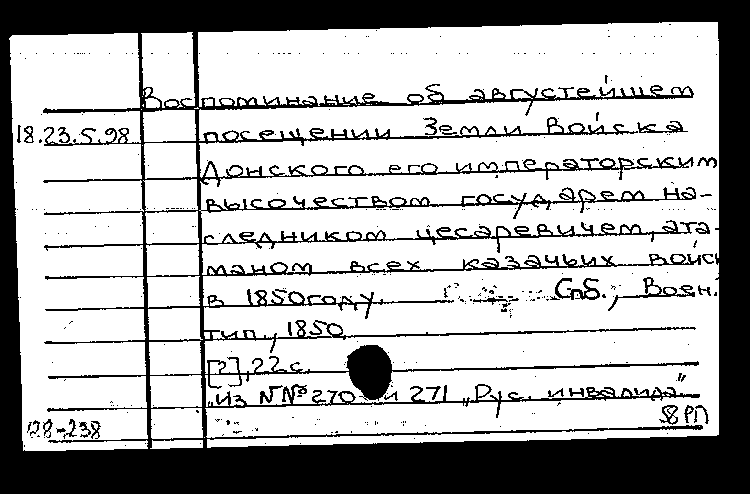 Воспоминание об августейшем
18.23.5.98 посещении Земли Войска
Донского его императорским
высочеством государем на-
следником цесаревичем, ата-
маном всех казачьих войск
в 1850 году. Спб., Воен.
тип., 1850.
[2], 22 с.
"Из №№ 270 и 271 "Рус. инвалида"
128-238 8 РП